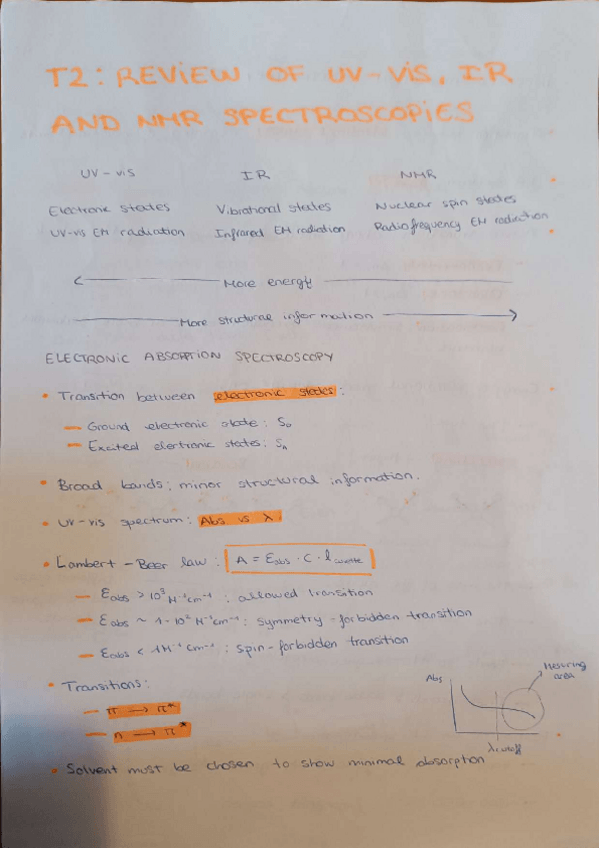 T2: REVIEW OF UV-VIS, IR
AND NMR SPECTROSCOPICS
UV-vis IR NMR
Electronic states Vibrational states Nuclear spin states
UV-vis EM radiation Infrared EM radiation Radiofrequency EM radiation
More energy
More structural information
ELECTRONIC ABSORPTION SPECTROSCOPY
• Transition between electronic states:
— Ground electronic state: S₀
— Excited electronic states: Sₙ
• Broad bands: minor structural information.
• UV-vis spectrum: Abs vs λ.
• Lambert-Beer law: A = Ɛabs · C · l cuvette
— Ɛabs > 10³ M⁻¹cm⁻¹: allowed transition
— Ɛabs ~ 1-10² M⁻¹cm⁻¹: symmetry-forbidden transition
— Ɛabs < 1M⁻¹cm⁻¹: spin-forbidden transition
• Transitions:
— π → π*
— n → π*
Abs
Mesuring
area
λcutoff
• Solvent must be chosen to show minimal absorption